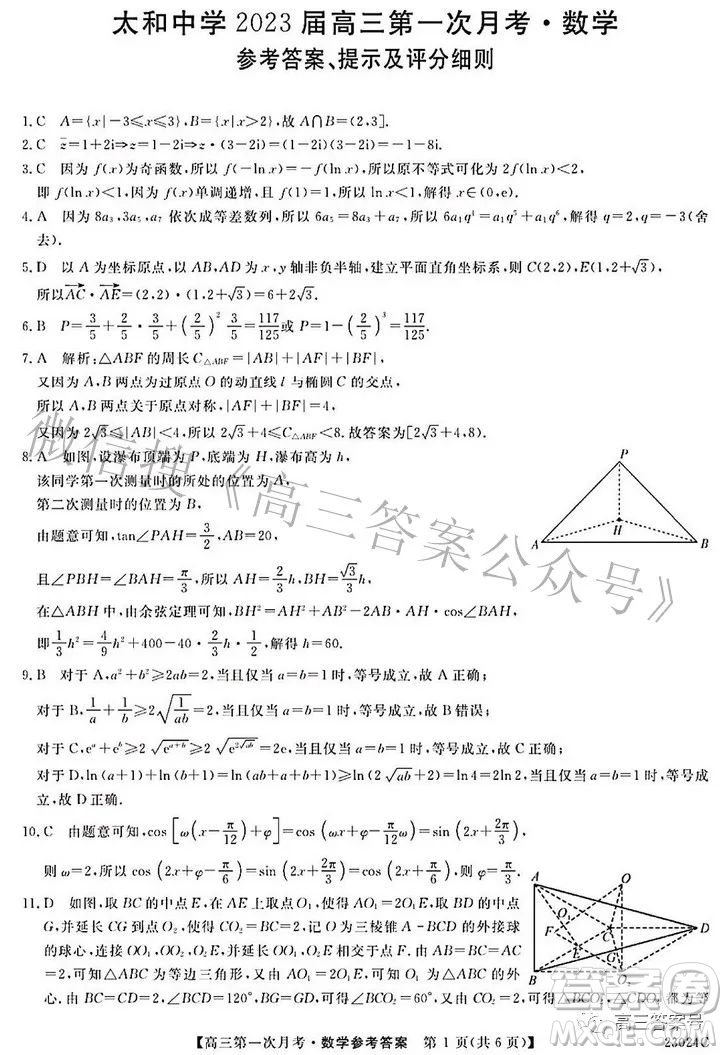 太和中学 2023 届高三第一次月考·数学
参考答案、提示及评分细则
1. C A={x|−3≤x≤3},B={x|x>2},故 A∩B=(2,3].
2. C z̅=1+2i⇒z=1−2i⇒z·(3−2i)=(1−2i)(3−2i)=−1−8i.
3. C 因为 f(x)为奇函数,所以 f(−ln x)=−f(ln x),所以原不等式可化为 2f(ln x)<2,
即 f(ln x)<1,因为 f(x)单调递增,且 f(1)=1,所以 ln x<1,解得 x∈(0,e).
4. A 因为 8a₃,3a₅,a₇ 依次成等差数列,所以 6a₅=8a₃+a₇,所以 6a₁q⁴=a₁q⁵+a₁q⁶,解得 q=2,q=−3(舍
去).
5. D 以 A 为坐标原点,以 AB,AD 为 x,y 轴非负半轴,建立平面直角坐标系,则 C(2,2),E(1,2+√3),
所以AC→·AE→=(2,2)·(1,2+√3)=6+2√3.
6. B P=3/5+2/5·3/5+(2/5)²3/5=117/125或 P=1−(2/5)³=117/125.
7. A 解析:△ABF 的周长 C△ABF=|AB|+|AF|+|BF|,
又因为 A,B 两点为过原点 O 的动直线 l 与椭圆 C 的交点,
所以 A,B 两点关于原点对称,|AF|+|BF|=4,
又因为 2√3≤|AB|<4,所以 2√3+4≤C△ABF<8.故答案为[2√3+4,8).
8. A 如图,设瀑布顶端为 P,底端为 H,瀑布高为 h,
该同学第一次测量时的所处的位置为 A,
第二次测量时的位置为 B,
由题意可知,tan∠PAH=3/2,AB=20,
且∠PBH=∠BAH=π/3,所以 AH=2/3h,BH=√3/3h,
在△ABH 中,由余弦定理可知,BH²=AH²+AB²−2AB·AH·cos∠BAH,
即1/3h²=4/9h²+400−40·2/3h·1/2,解得 h=60.
9. B 对于 A,a²+b²≥2ab=2,当且仅当 a=b=1 时,等号成立,故 A 正确;
对于 B,1/a+1/b≥2√(1/ab)=2,当且仅当 a=b=1 时,等号成立,故 B 错误;
对于 C,eᵃ+eᵇ≥2√(e^(a+b))≥2√(e^(2√ab))=2e,当且仅当 a=b=1 时,等号成立,故 C 正确;
对于 D,ln(a+1)+ln(b+1)=ln(ab+a+b+1)≥ln(2√ab+2)=ln4=2ln2,当且仅当 a=b=1 时,等号成
立,故 D 正确.
10. C 由题意可知,cos[ω(x−π/12)+φ]=cos(ωx+φ−π/12ω)=sin(2x+π/6),
则 ω=2,所以 cos(2x+φ−π/6)=sin(2x+π/6)=cos(2x−π/3),所以 φ=−π/6.
11. D 如图,取 BC 的中点 E,在 AE 上取点 O₁,使得 CO₁=AO₁,取 BD 的中点
G,并延长 CG 到点 O₂,使得 CO₂=BC=2,记 O 为三棱锥 A−BCD 的外接球
的球心,连接 OO₁,OO₂,BO₂,DO₂,则 OO₁⊥AE,OO₂⊥CO₂,由 AB=BC=AC
=2,可知△ABC 为等边三角形,又由 AO₁=CO₁,可知点 O₁ 为△ABC 的外
心,由 BC=CD=2,∠BCD=120°,BG=DG,CO₂=2,可得△BCO₂,△CDO₂ 都为等
P
H
A
B
A
O
O₁
F
C
D
E
G
B
O₂
【高三第一次月考·数学参考答案 第 1 页(共 6 页)】
23024C
微信搜《高三答案公众号》
高三答案号
答案圈
MXQE.COM